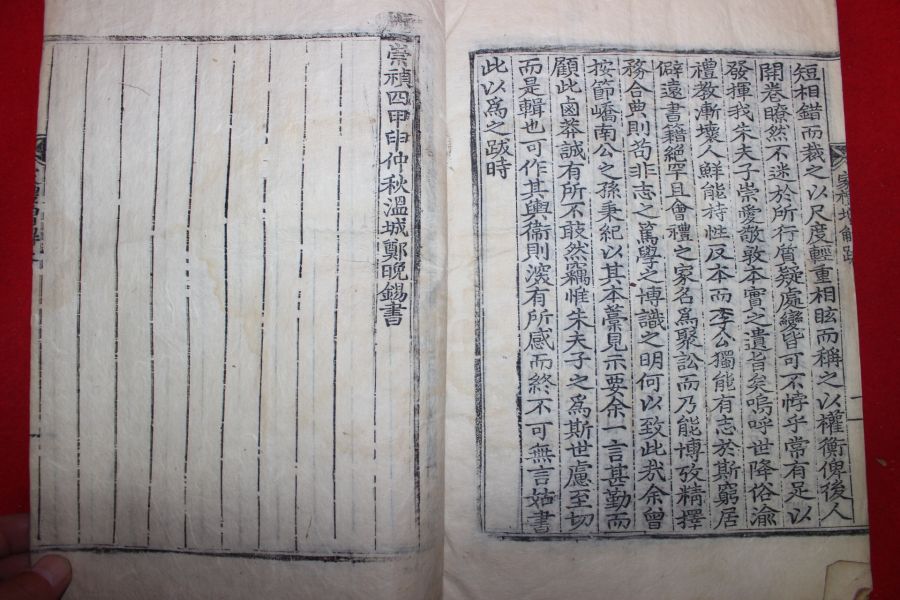 短相錯而裁之以尺度輕重相眩而稱之以權衡俾後人
開卷瞭然不迷於所行質疑處變皆可不悖乎常有足以
發揮我朱夫子崇愛敬敦本實之遺旨矣嗚呼世降俗渝
禮教漸壞人鮮能持性反本而李公獨能有志於斯窮居
僻遠書籍絕罕且會禮之家名爲聚訟而乃能博攷精擇
務合典則苟非志之篤學之博識之明何以致此哉余曾
按節嶠南公之孫秉紀以其本藁見示要余一言甚勤而
顧此鹵莽誠有所不敢然竊惟朱夫子之爲斯世慮至切
而是輯也可作其輿衞則深有所感而終不可無言姑書
此以爲之跋時
崇禎四甲申仲秋溫城鄭晩錫書
家禮增解跋